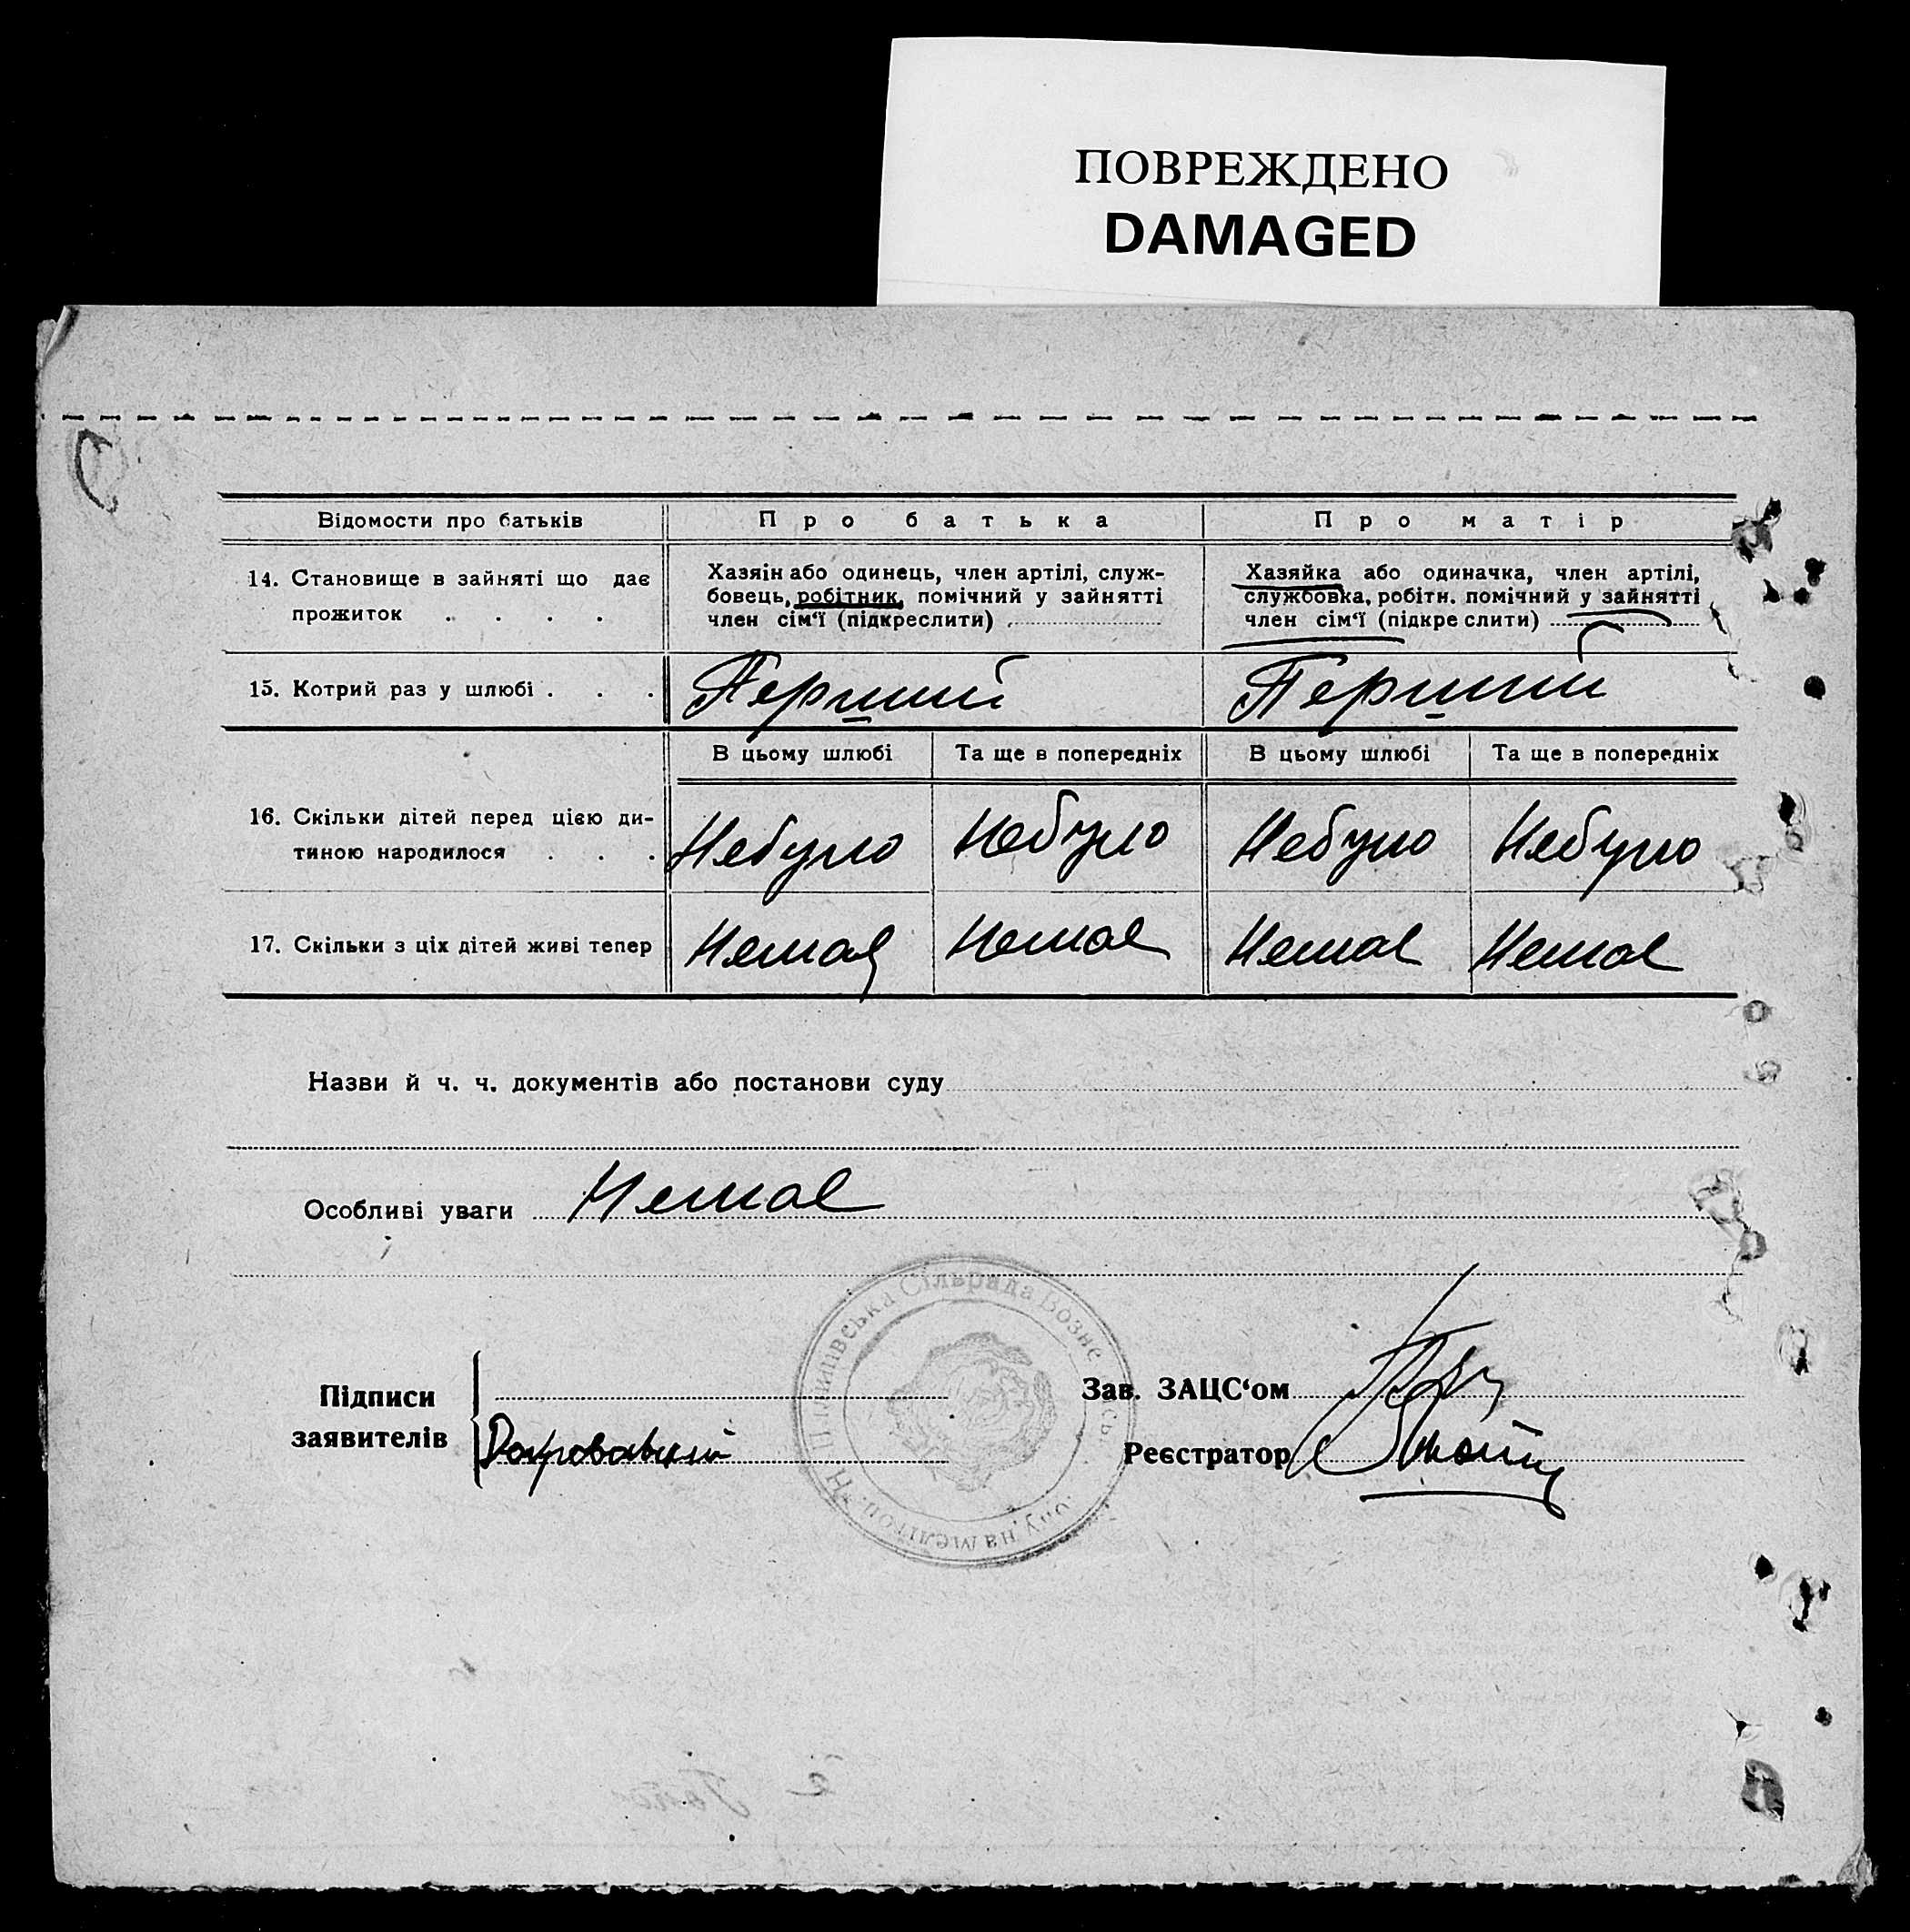 ПОВРЕЖДЕНО
DAMAGED
Відомости про батьків
Про батька
Про матір
14. Становище в зайняті що дає
прожиток . . . .
Хазяін або одинець, член артілі, служ-
бовець, робітник, помічний у зайнятті
член сім‘ї (підкреслити)
Хазяйка або одиначка, член артілі,
службовка, робітн. помічний у зайнятті
член сім‘ї (підкреслити)
15. Котрий раз у шлюбі . . .
Перший
Перший
В цьому шлюбі
Та ще в попередніх
В цьому шлюбі
Та ще в попередніх
16. Скільки дітей перед цією ди-
тиною народилося . . .
Небуло
Небуло
Небуло
Небуло
17. Скільки з ціх дітей живі тепер
Немає
Немає
Немає
Немає
Назви й ч. ч. документів або постанови суду
Особливі уваги Немає
Сільрада
Підписи
заявителів
Зав. ЗАЦС‘ом
Реєстратор